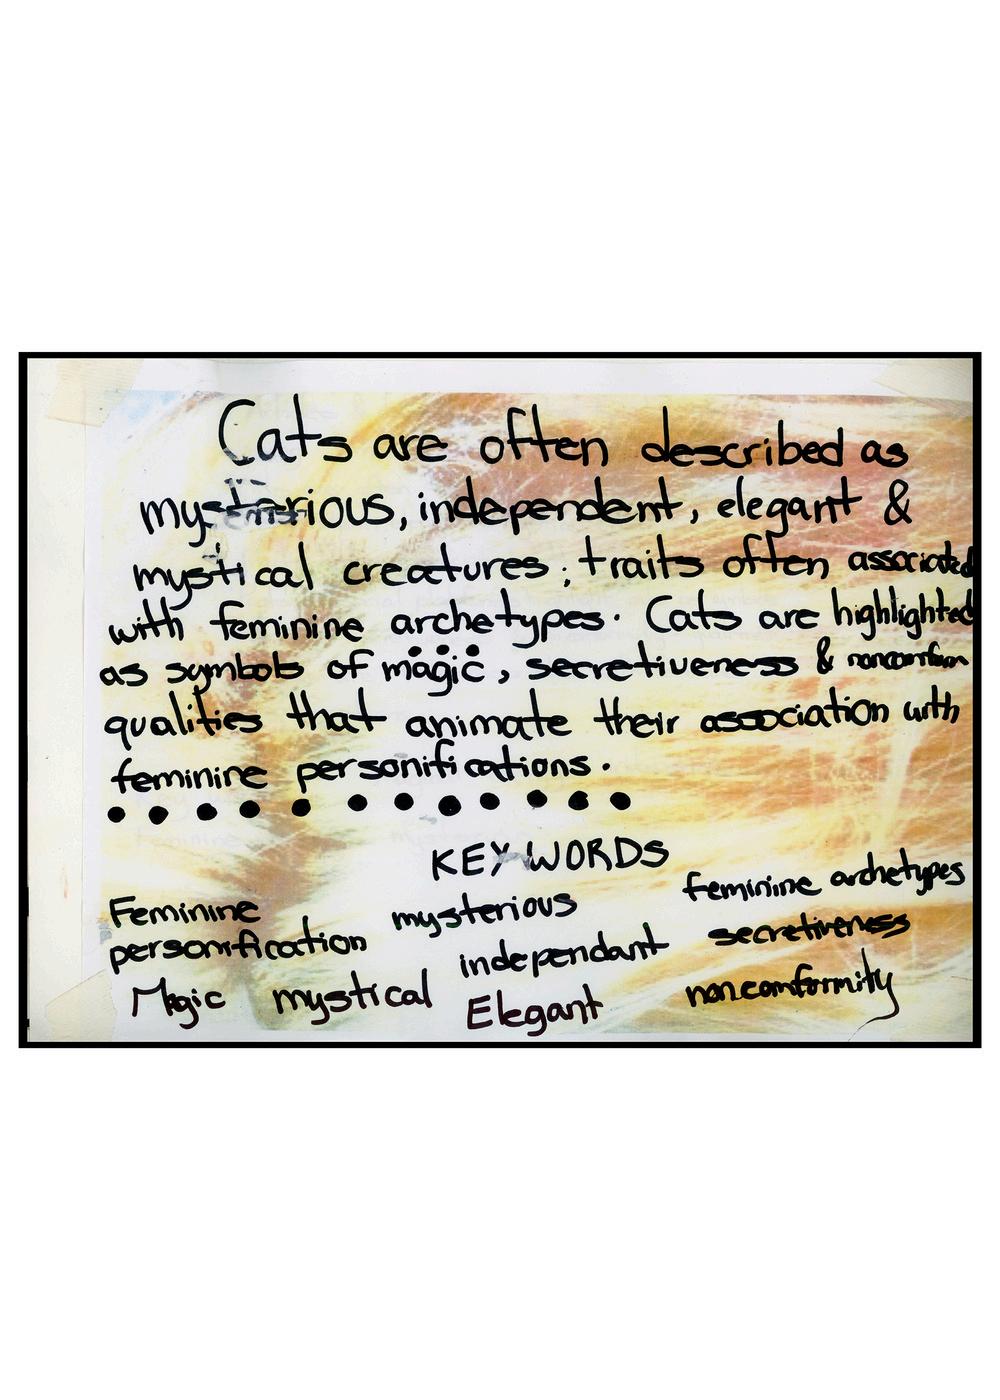 Cats are often described as
mysterious, independent, elegant &
mystical creatures; traits often associated
with feminine archetypes. Cats are highlighted
as symbols of magic, secretiveness & nonconform
qualities that animate their association with
feminine personifications.
KEY WORDS
Feminine personification
mysterious
feminine archetypes
independant
secretiveness
Magic
mystical
Elegant
noncomformity